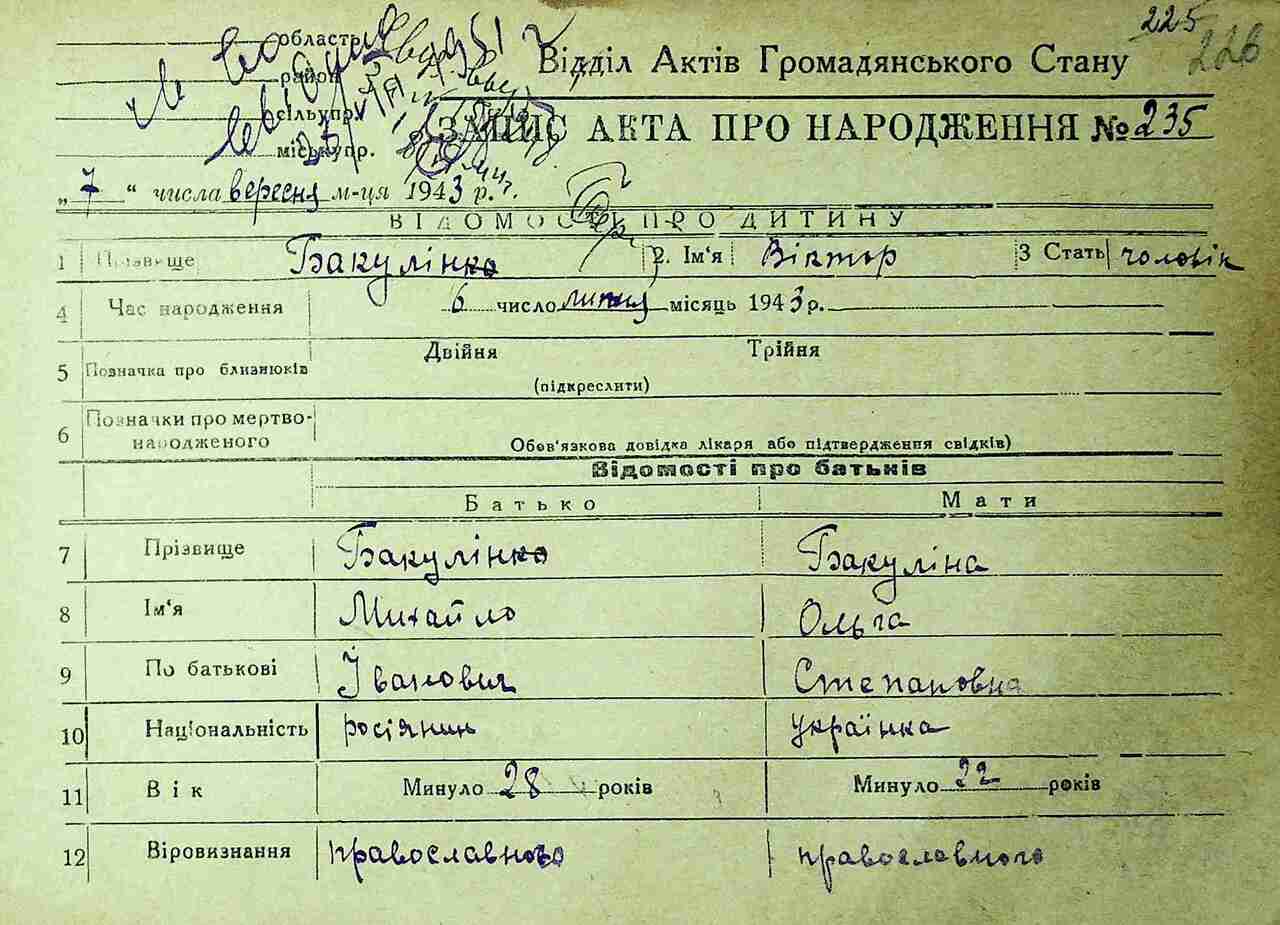 225
226
область
район
сільупр.
міськупр.
Відділ Актів Громадянського Стану
ЗАПИС АКТА ПРО НАРОДЖЕННЯ № 235
„ 7 “ числа вересня м-ця 1943 р.
ВІДОМОСТІ ПРО ДИТИНУ
1 Прізвище Бакулінко 2. Ім'я Віктор 3 Стать чоловік
4 Час народження 6 число липня місяць 1943 р.
Двійня Трійня
5 Позначка про близнюків
(підкреслити)
6 Позначки про мертво-
народженого
Обов'язкова довідка лікаря або підтвердження свідків)
Відомості про батьків
Батько Мати
7 Прізвище Бакулінко Бакуліна
8 Ім'я Михайло Ольга
9 По батькові Іванович Степановна
10 Національність росіянин українка
11 Вік Минуло 28 років Минуло 22 років
12 Віровизнання православного православного